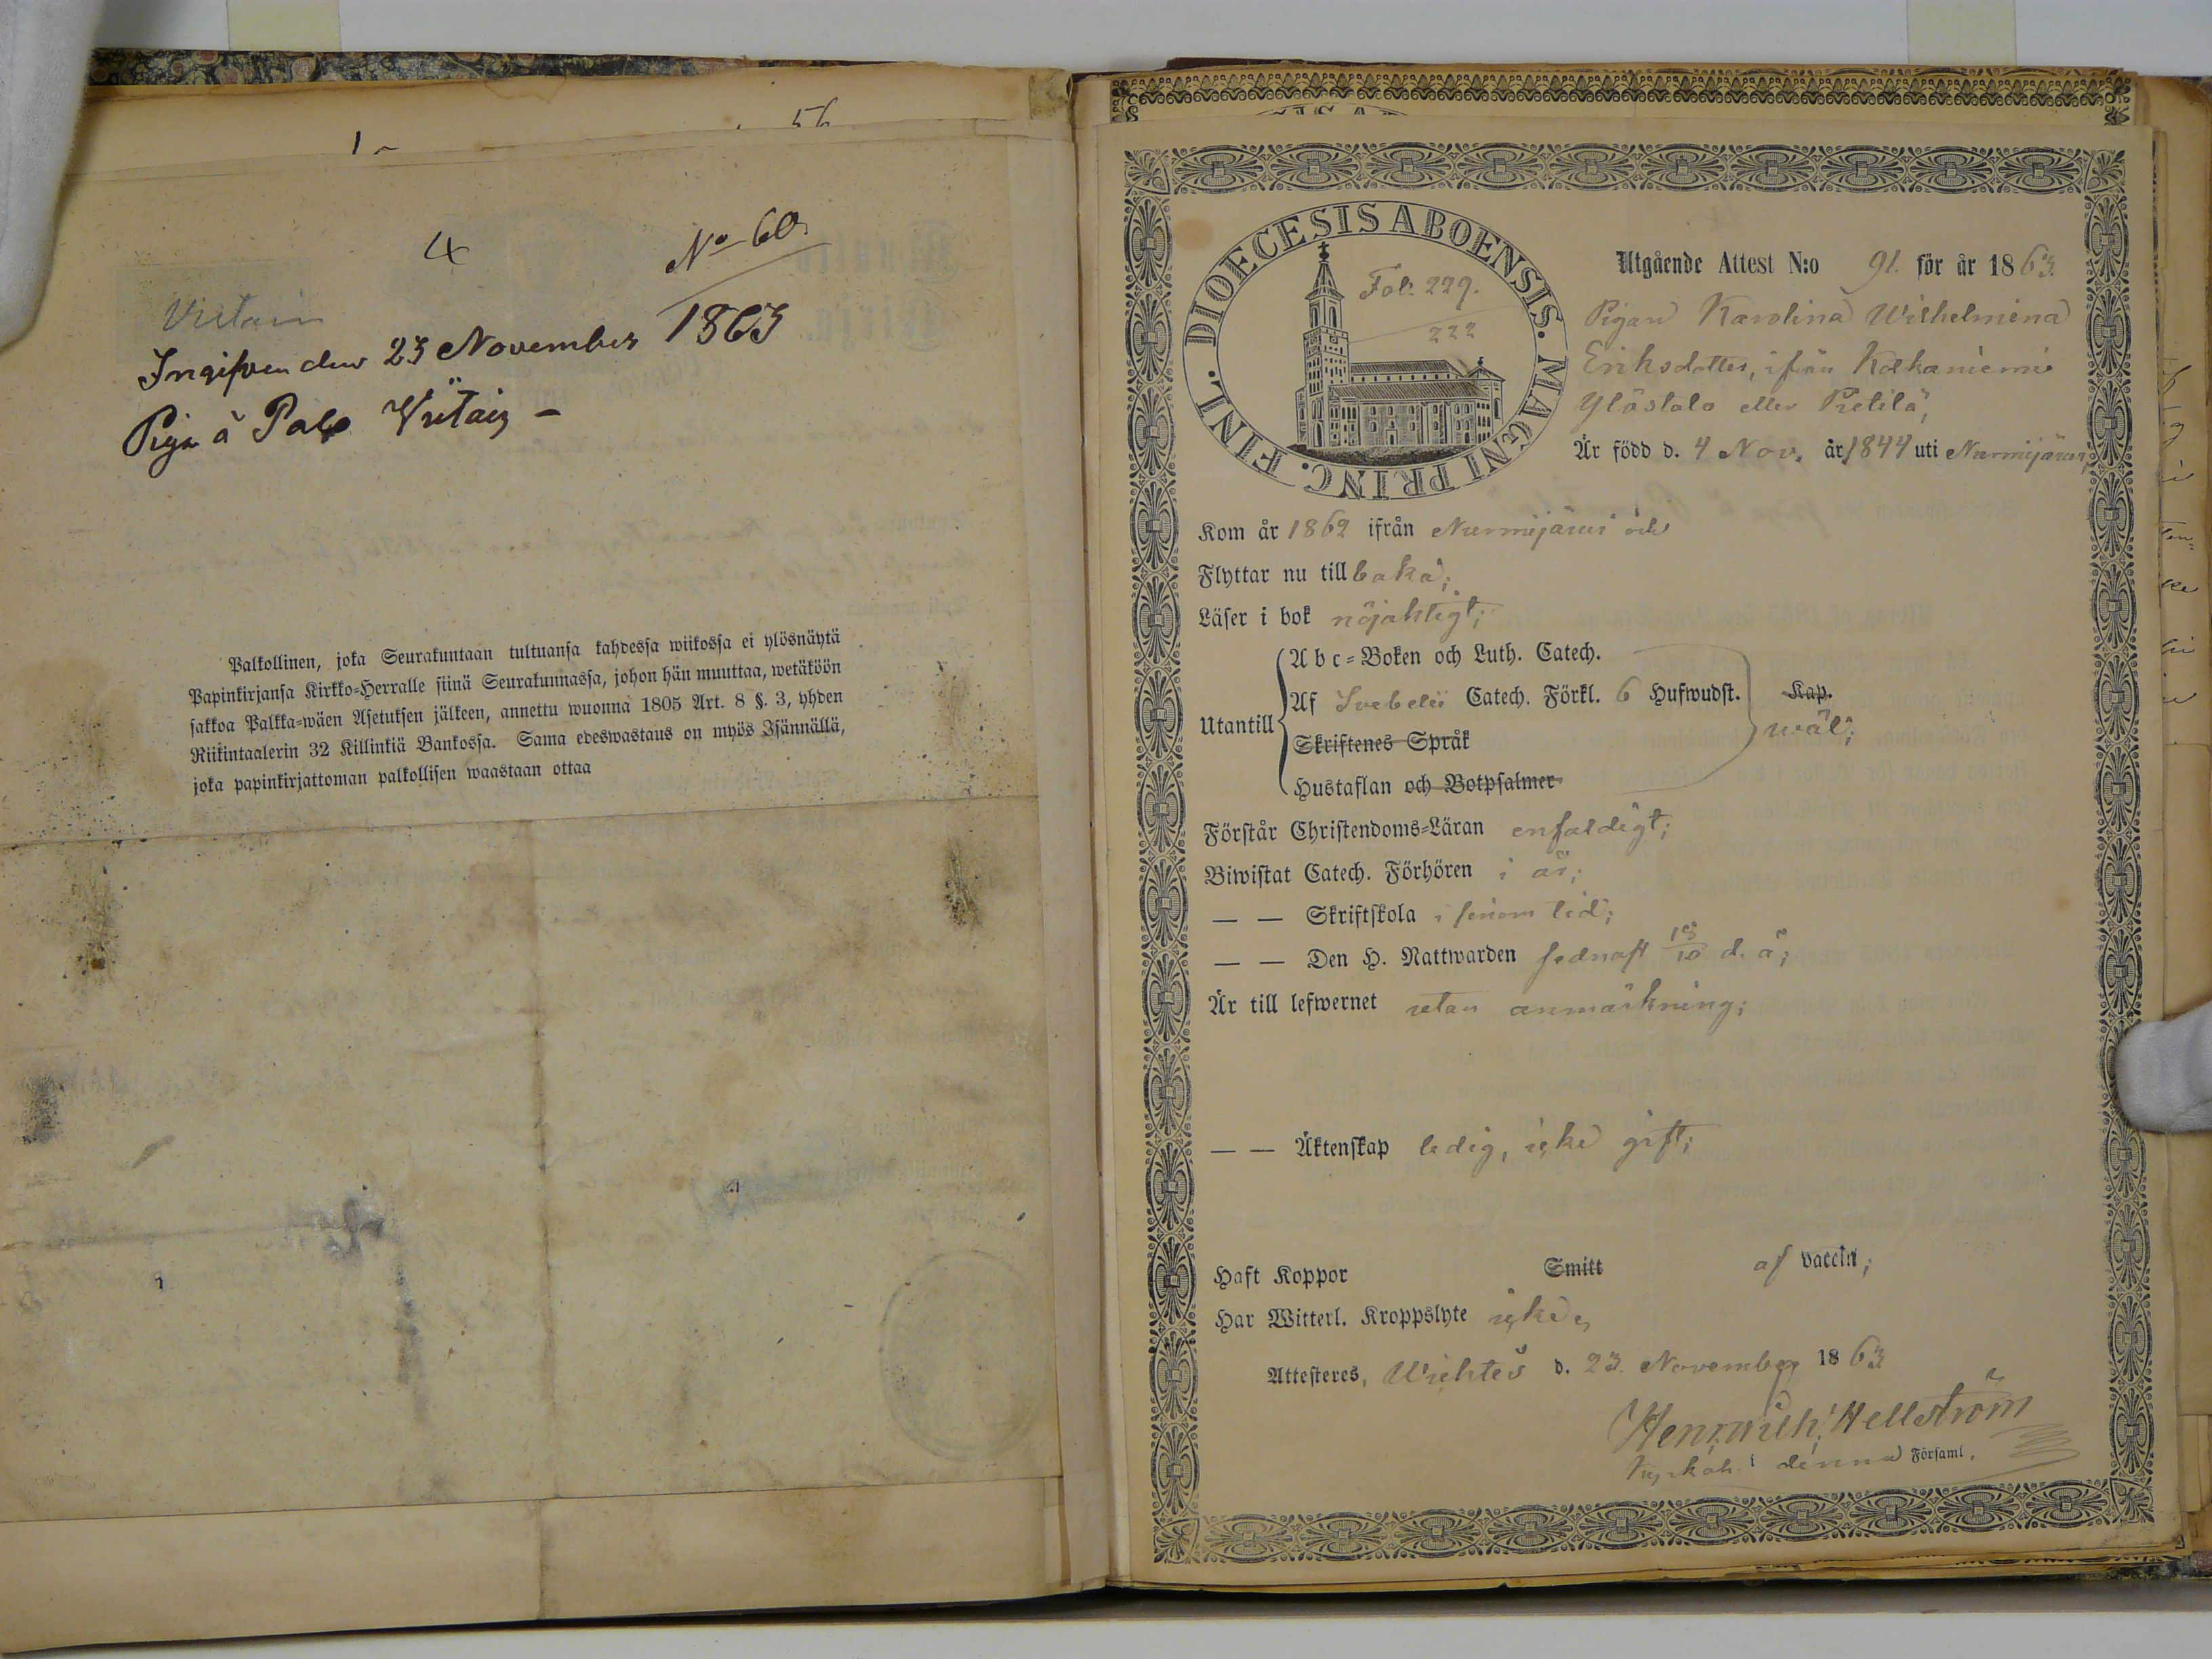 56
4
No 60
Vritain
Ingifven den 23 November 1863
Piga å Palo Writain –
Palkollinen, joka Seurakuntaan tultuansa kahdessa wiikossa ei ylösnäytä
Papinkirjansa Kirkko-Herralle siinä Seurakunnassa, johon hän muuttaa, wetäköön
sakkoa Palkka-wäen Asetuksen jälkeen, annettu wuonna 1805 Art. 8 §. 3, yhden
Riikintaalerin 32 Killinkiä Bankossa. Sama edeswastaus on myös Isännällä,
joka papinkirjattoman palkollisen waastaan ottaa
DIOECESIS ABOENSIS. MAGNI PRINC. FINL.
Fol. 229.
222
Utgående Attest N:o 91. för år 1863.
Pigan Karolina Wilhelmina
Eriksdotter, ifrån Kekaniemi
Ylöstalo eller Pietilä,
Är född d. 4 Nov. år 1844 uti Nurmijärvi,
Kom år 1862 ifrån Nurmijärvi och
Flyttar nu tillbaka;
Läser i bok nöjaktigt;
Utantill
Abc-Boken och Luth. Catech.
Af Svebelii Catech. Förkl. 6 Hufwudst. Kap.
Skriftenes Språk
wäl;
Hustaflan och Botpsalmer
Förstår Christendoms-Läran enfaldigt;
Biwistat Catech. Förhören i år;
— — Skriftskola i sinom tid;
— — Den H. Nattwarden sednast 18/10 d. å;
Är till lefwernet utan anmärkning;
— — Äktenskap ledig, icke gift;
Haft Koppor Smitt af vaccin;
Har Witterl. Kroppslyte icke,
Attesteres, Wichtis d. 23. November 1863
Henrich Hellström
Kyrkoh. i denna Församl.